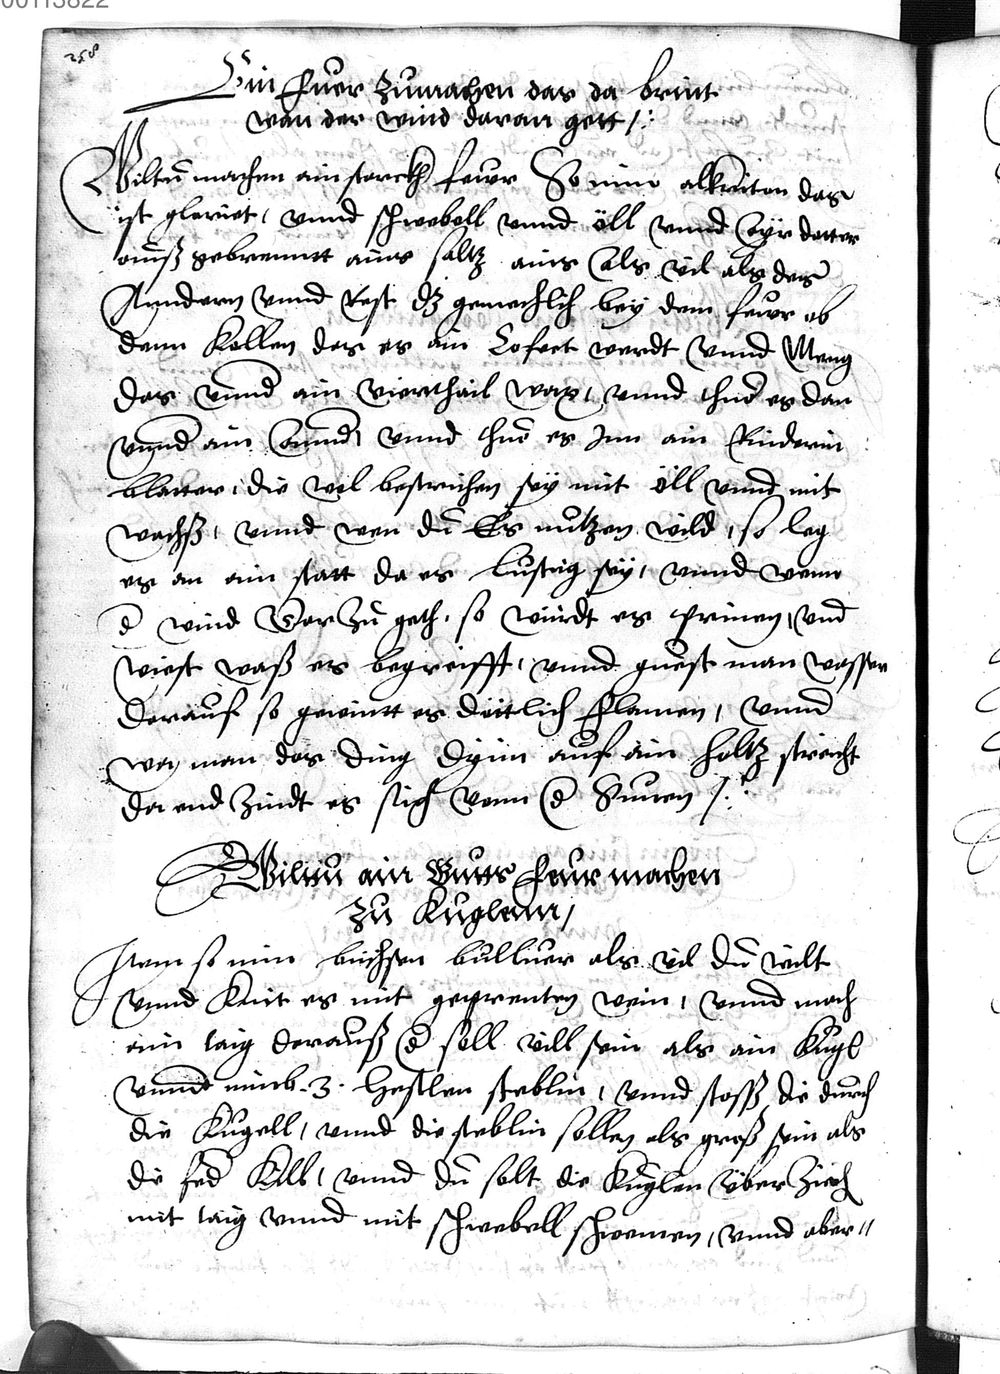 00113822
258
Ein Fuer zumachen das da brint
wan der wind daran gett /:
Wiltu machen ain starckh feur So nim alkitran das
ist glariet, vnnd schwebell vnnd öll vnnd Ayr dotter
auß gebrenntt ains saltz ains als vil als des
Anndern vnnd Rest dz gemechlich bey dem feur ob
denn Kollen das es ain werdt vnnd Meng
das vnnd ain vierthail wax, vnnd thue es dan
vnnd ain vnnd thue es Inn ain Rinderin
blatter, die wol bestrichen sey mit öll vnnd mit
wachß, vnnd wen du Es nutzen wild, so leg
es an ain statt da es lustig sey, vnnd wenn
d wind Darzu geth, so wirdt es prinen, vnd
was waß es begreifft, vnnd geust man wasser
darauf so gewintt es döttlich Flamen, vnnd
wa man das ding auf ain holtz streicht
da end Zindt es sich vonn d Sunen /:
Wiltu ain Gutts Feur machen
zu Kuglenn /
Item so nim büchsen bulluer als vil du wilt
vnnd Knit es mit geprenten wein, vnnd mach
ain taig darauß d soll vill sein als ain Kugl
vnnd nimb .3. Heslen steblin, vnnd stosß die durch
die Kugell, vnnd die steblin sollen als groß sein als
die fed Kill, vnnd du solt die Kuglen über Ziech
mit taig vnnd mit schwebell schwemen, vnnd aber //